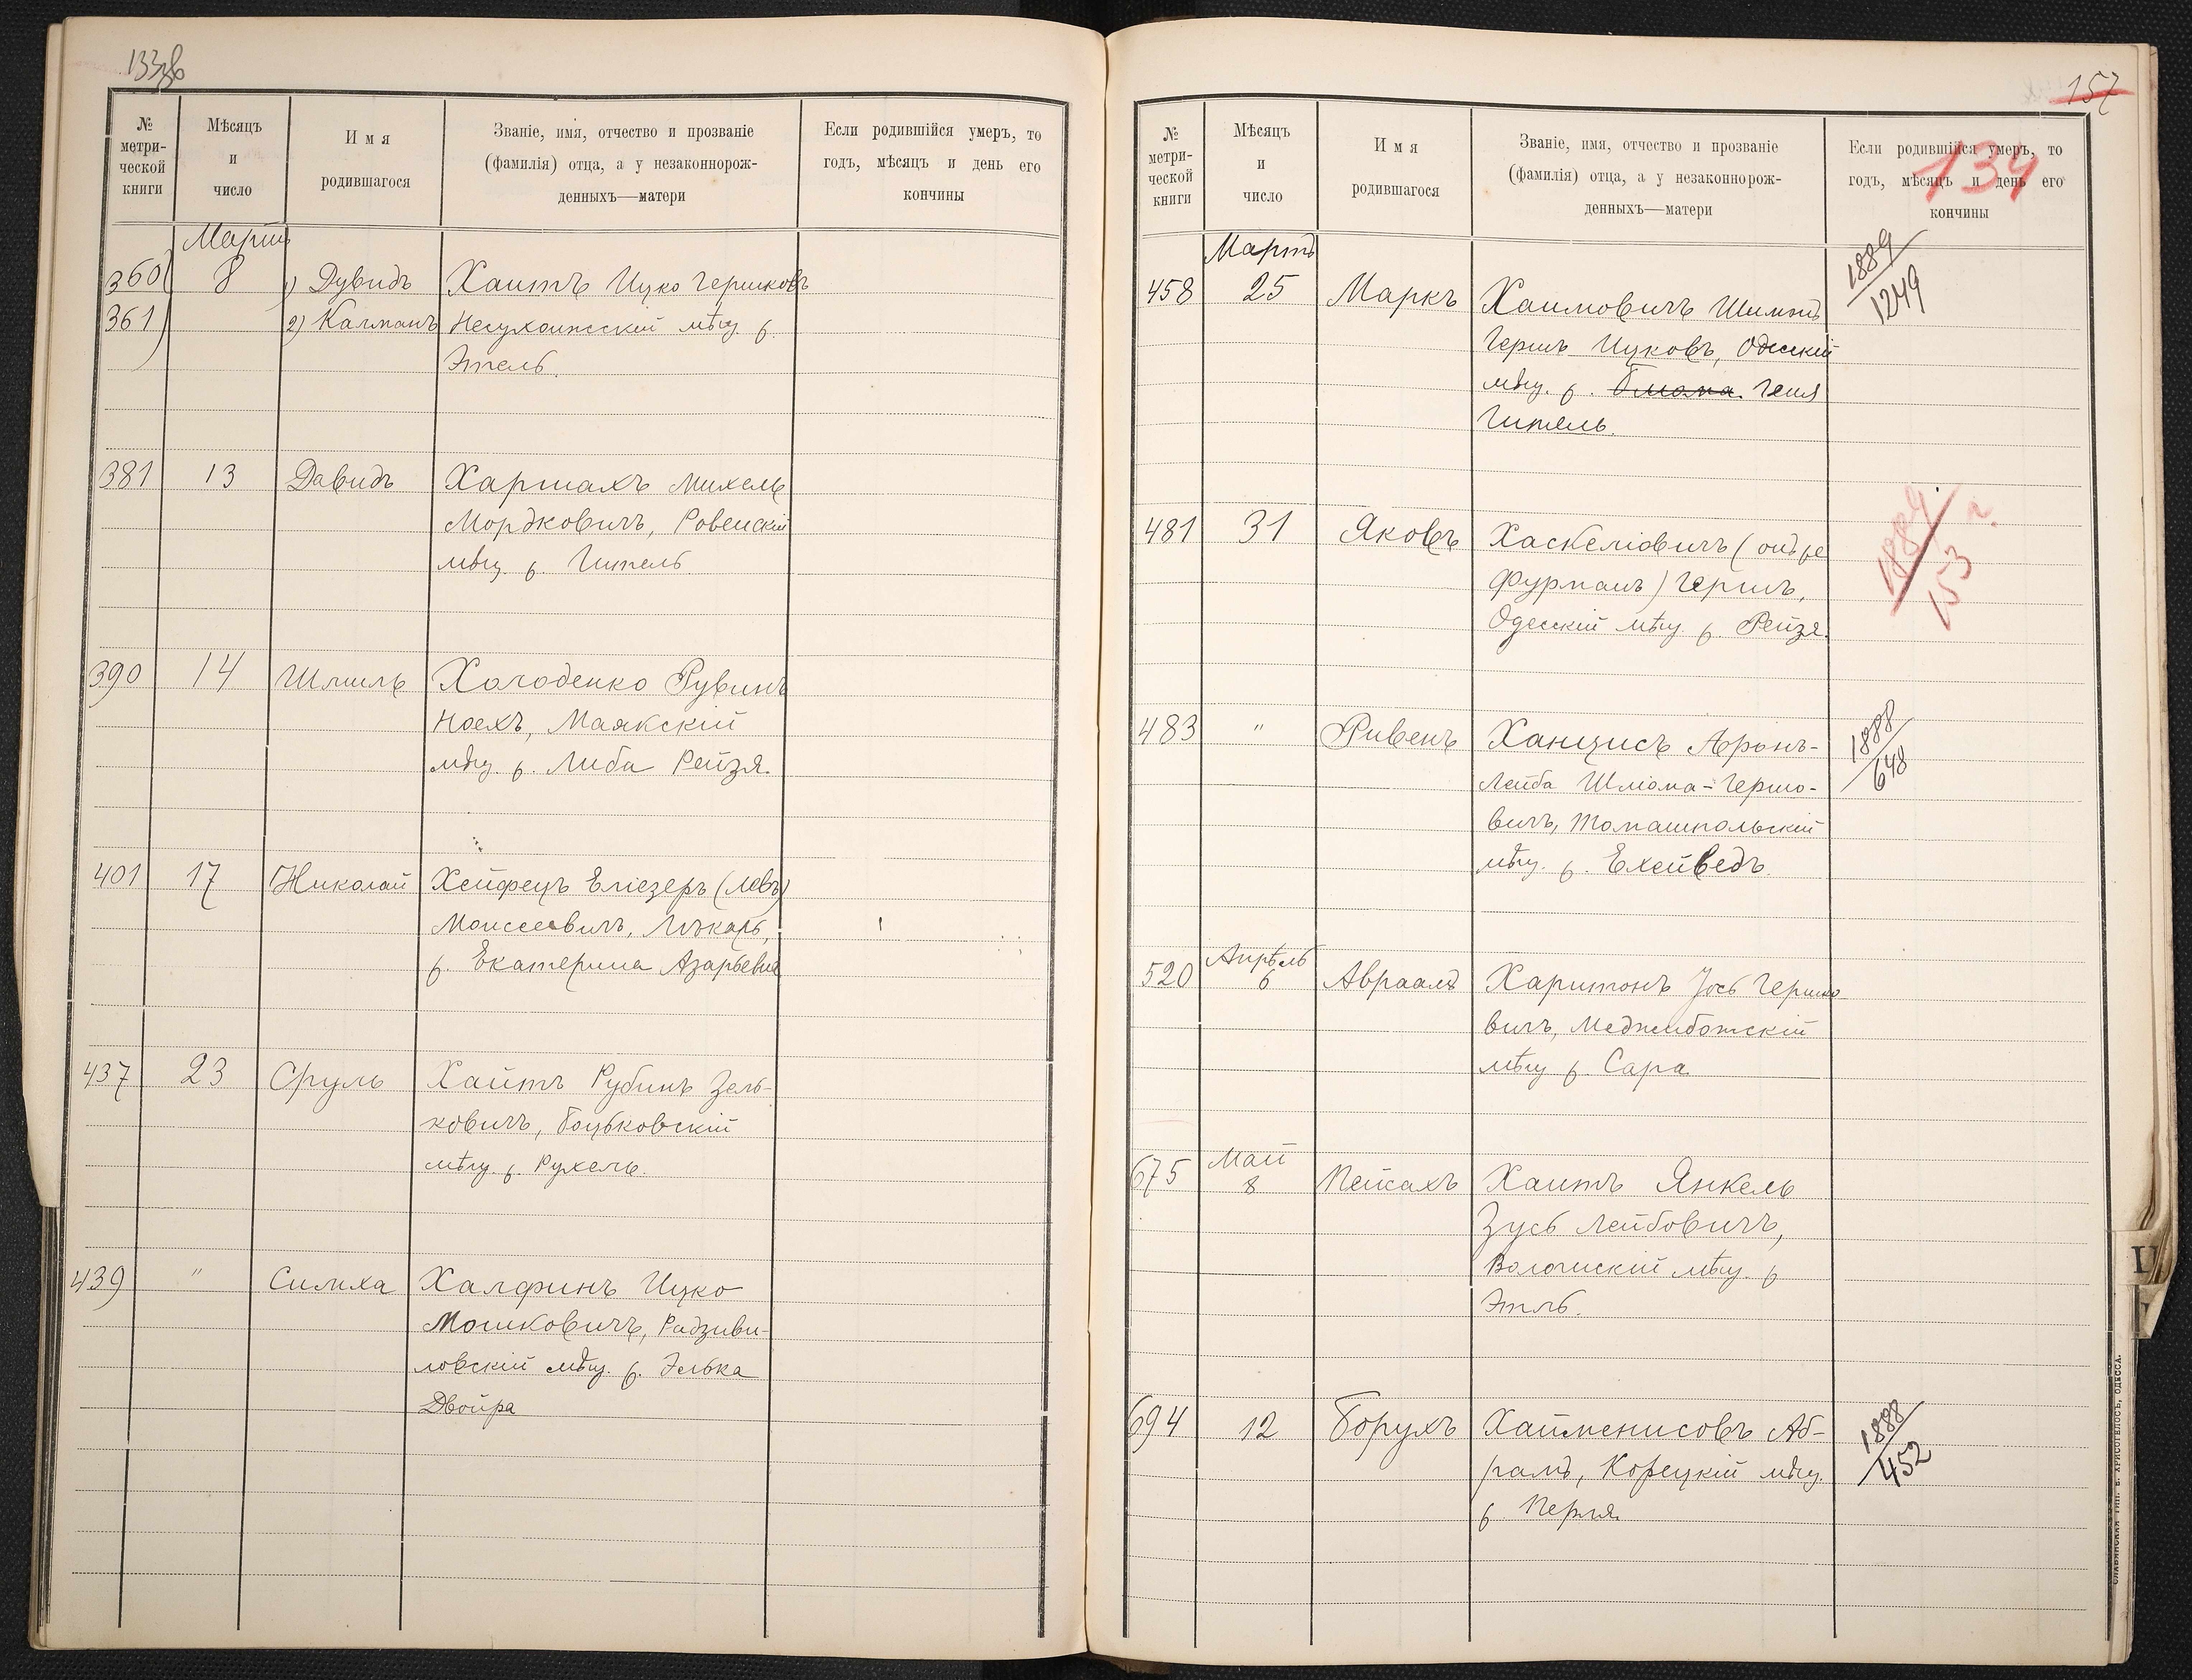 133 об
№ метри-ческой книги
Мѣсяцъ и число
Имя родившагося
Званіе, имя, отчество и прозваніе
(фамилія) отца, а у незаконнорож-
денныхъ—матери
Если родившійся умеръ, то
годъ, мѣсяцъ и день его
кончины
Мартъ
360) 8 1) Дувидъ Хаитъ Ицко Гершковъ
361) 2) Калманъ Несухоижскій мѣщ. р.
Этель.
381 13 Давидъ Харшахъ Михель
Мордковичъ, Ровенскій
мѣщ. р. Гитель
390 14 Шмиль Холоденко Рувинъ
Ноехъ, Маякскій
мѣщ. р. Либа Рейзя.
401 17 Николай Хейфецъ Еліезеръ (Левъ)
Моисеевичъ, Лѣкарь,
р. Екатерина Азарьевна
437 23 Сруль Хаитъ Рубинъ Зель-
ковичъ, Боцьковскій
мѣщ. р. Рухель.
439 " Симха Халфинъ Ицко
Мошковичъ, Радзиви-
ловскій мѣщ. р. Элька
Двойра
157
134
№ метри-ческой книги
Мѣсяцъ и число
Имя родившагося
Званіе, имя, отчество и прозваніе
(фамилія) отца, а у незаконнорож-
денныхъ—матери
Если родившійся умеръ, то
годъ, мѣсяцъ и день его
кончины
Мартъ
458 25 Маркъ Хаимовичъ Шимонъ 1889/1249
Гершъ Ицковъ, Одесскій
мѣщ. р. Геня
Гитель.
481 31 Яковъ Хаскеліовичъ (онъ же 1889/153 г.
Фурманъ) Гершъ,
Одесскій мѣщ. р. Рейзя.
483 " Ривенъ Ханцисъ Аронъ- 1888/648
Лейба Шліома-Гершо-
вичъ, Томашпольскій
мѣщ. р. Ехейведъ.
Апрѣль
520 6 Авраамъ Харитонъ Іось Гершко-
вичъ, Меджибожскій
мѣщ р. Сара
Май
675 8 Пейсахъ Хаитъ Янкель
Зусь Лейбовичъ,
мѣщ. р
Этль.
694 12 Борухъ Хайменисовъ Аб- 1888/452
рамъ, Корецкій мѣщ.
р. Перля.
СЛАВЯНСКАЯ ТИП. Б. ХРИСОГЕЛОСЪ, ОДЕССА.